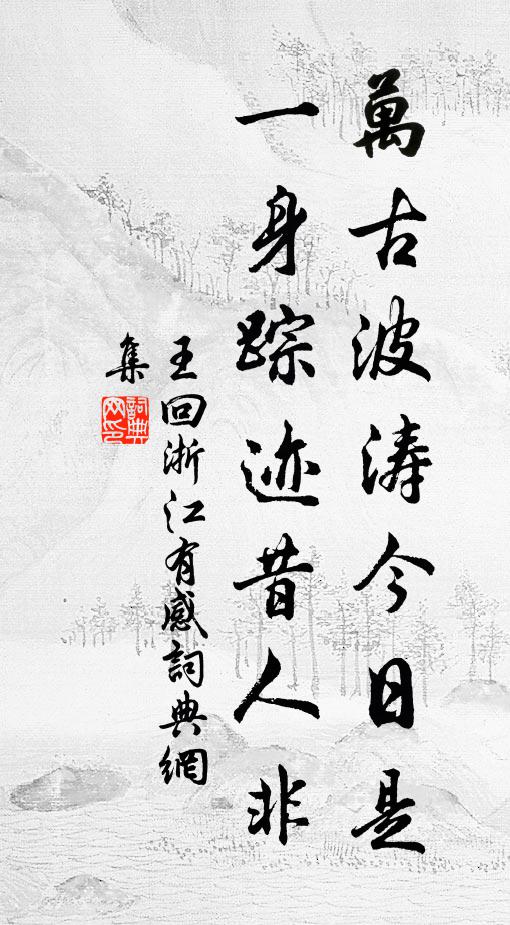 萬古波涛今日是
一身踪迹昔人非
王回浙江有感詞典網
集
詞典
网印